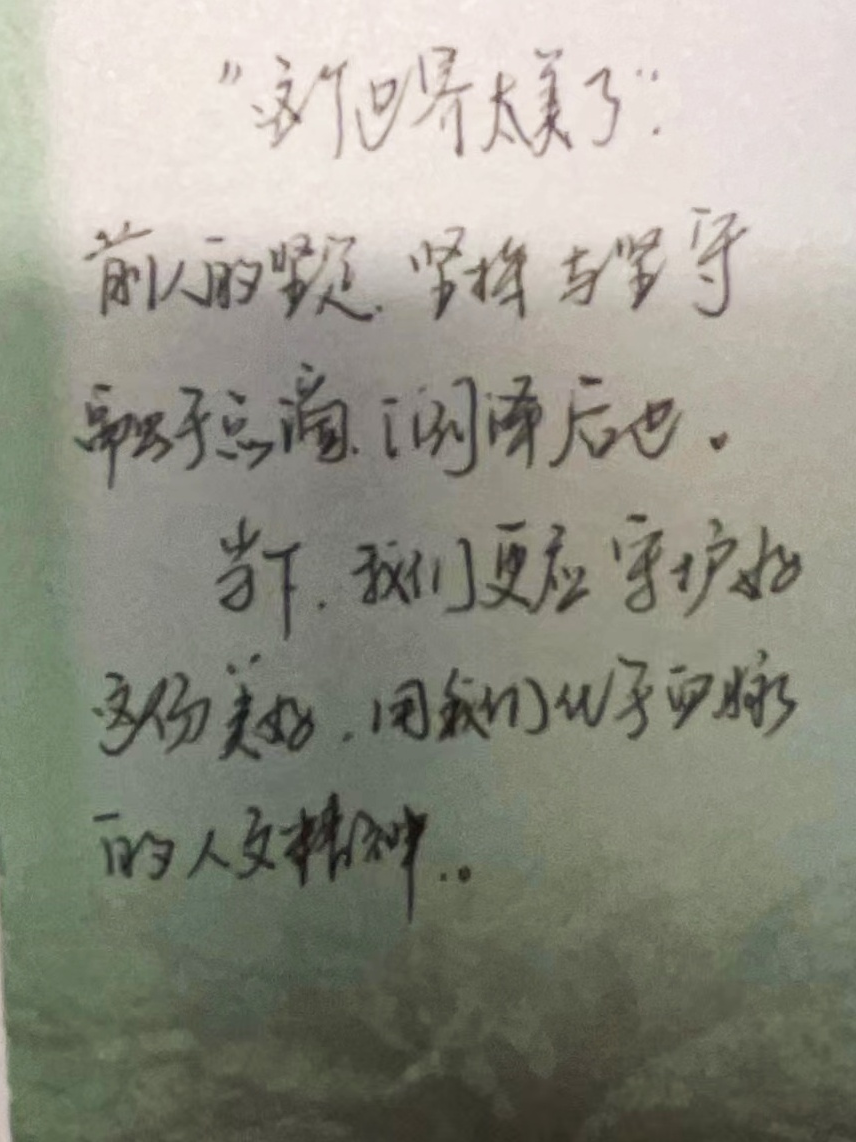 “这个世界太美了”.
前人的坚定、坚持与坚守
融于点滴、润泽后世。
当下，我们更应守护好
这份美好，用我们化于血脉
的人文精神。